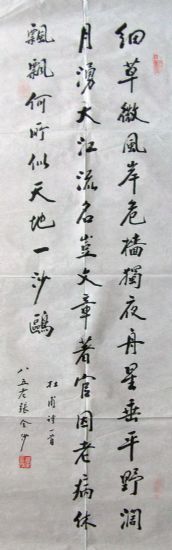 細草微風岸危檣獨夜舟星垂平野濶
月湧大江流名豈文章著官因老病休
飄飄何所似天地一沙鷗
杜甫詩一首
八五老張全